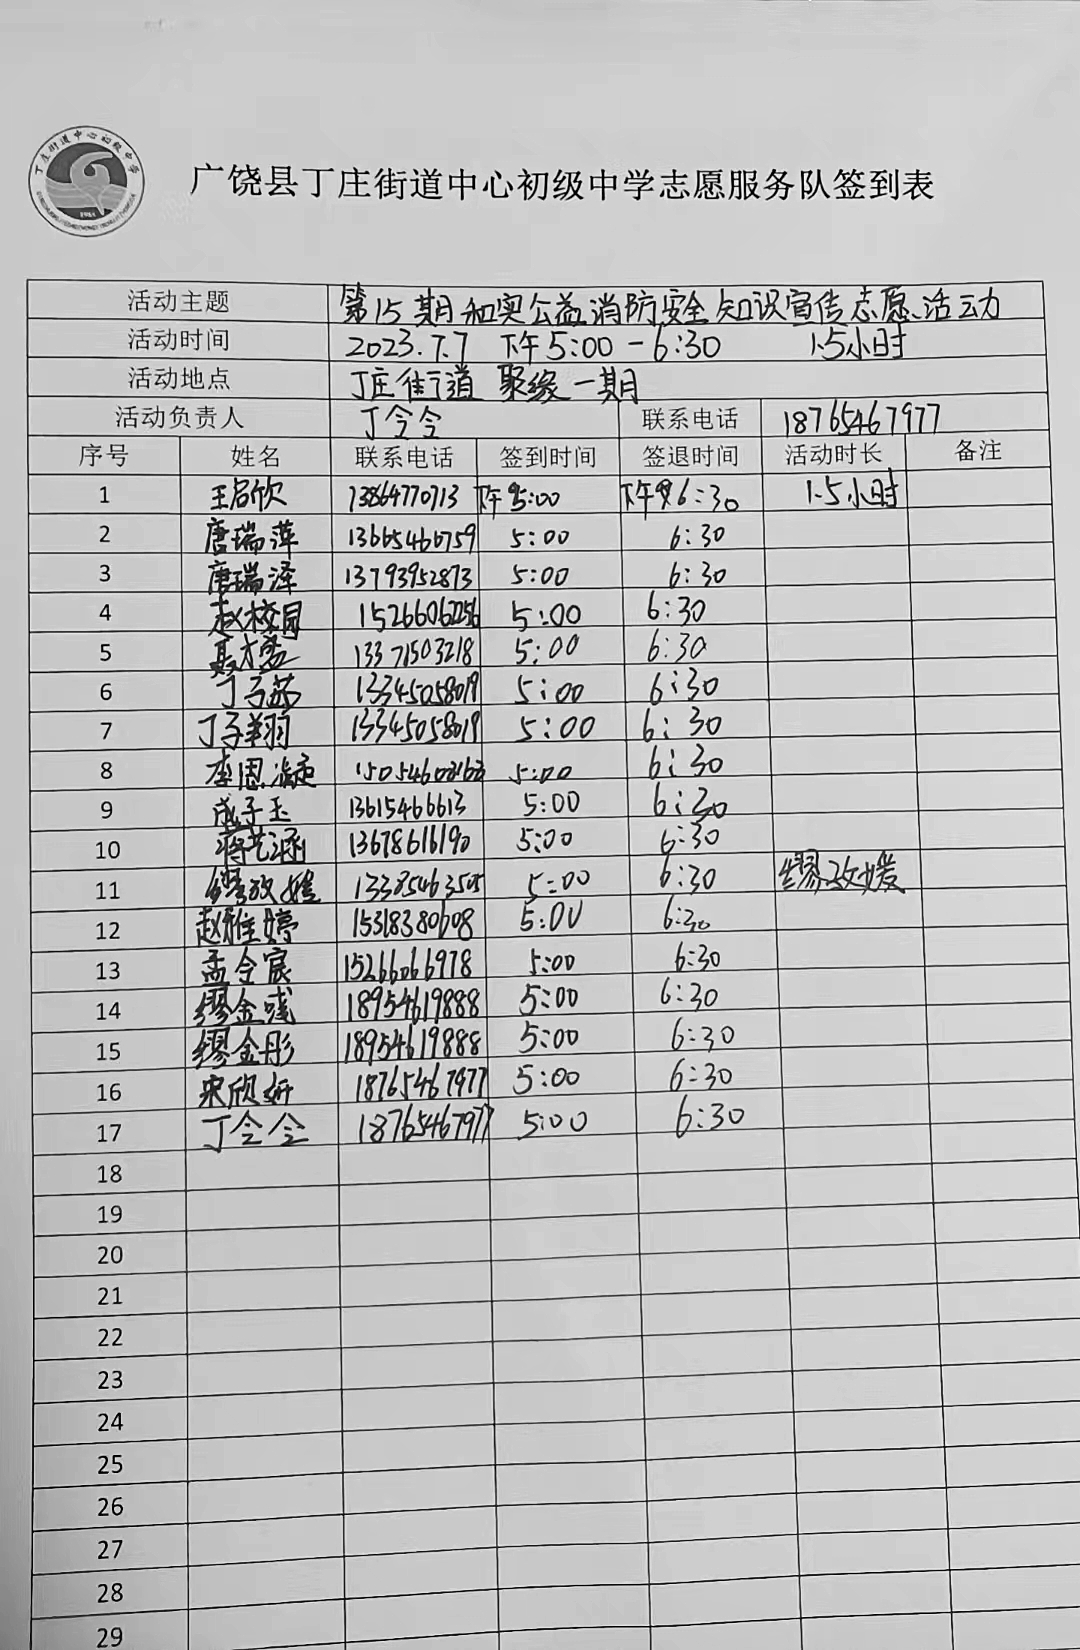 丁庄街道中心初级中学
1984
广饶县丁庄街道中心初级中学志愿服务队签到表
活动主题 第15期和奥公益消防安全知识宣传志愿活动
活动时间 2023.7.7 下午5:00-6:30 1.5小时
活动地点 丁庄街道 聚缘一期
活动负责人 丁令令 联系电话 18765467977
序号 姓名 联系电话 签到时间 签退时间 活动时长 备注
1 王启欣 13864770713 下午5:00 下午6:30 1.5小时
2 唐瑞萍 13665466759 5:00 6:30
3 唐瑞泽 13793952873 5:00 6:30
4 赵校园 15266062256 5:00 6:30
5 13371503218 5:00 6:30
6 丁子茹 13345058019 5:00 6:30
7 丁子翔 13345058019 5:00 6:30
8 李恩凝 5:00 6:30
9 成子玉 13615466613 5:00 6:30
10 蒋艺涵 13678616190 5:00 6:30
11 缪孜媛 13385463505 5:00 6:30 缪孜媛
12 赵雅婷 15318380608 5:00 6:30
13 孟令宸 15266066978 5:00 6:30
14 缪金彧 18954619888 5:00 6:30
15 缪金彤 18954619888 5:00 6:30
16 宋欣妍 18765467977 5:00 6:30
17 丁令令 18765467977 5:00 6:30
18
19
20
21
22
23
24
25
26
27
28
29